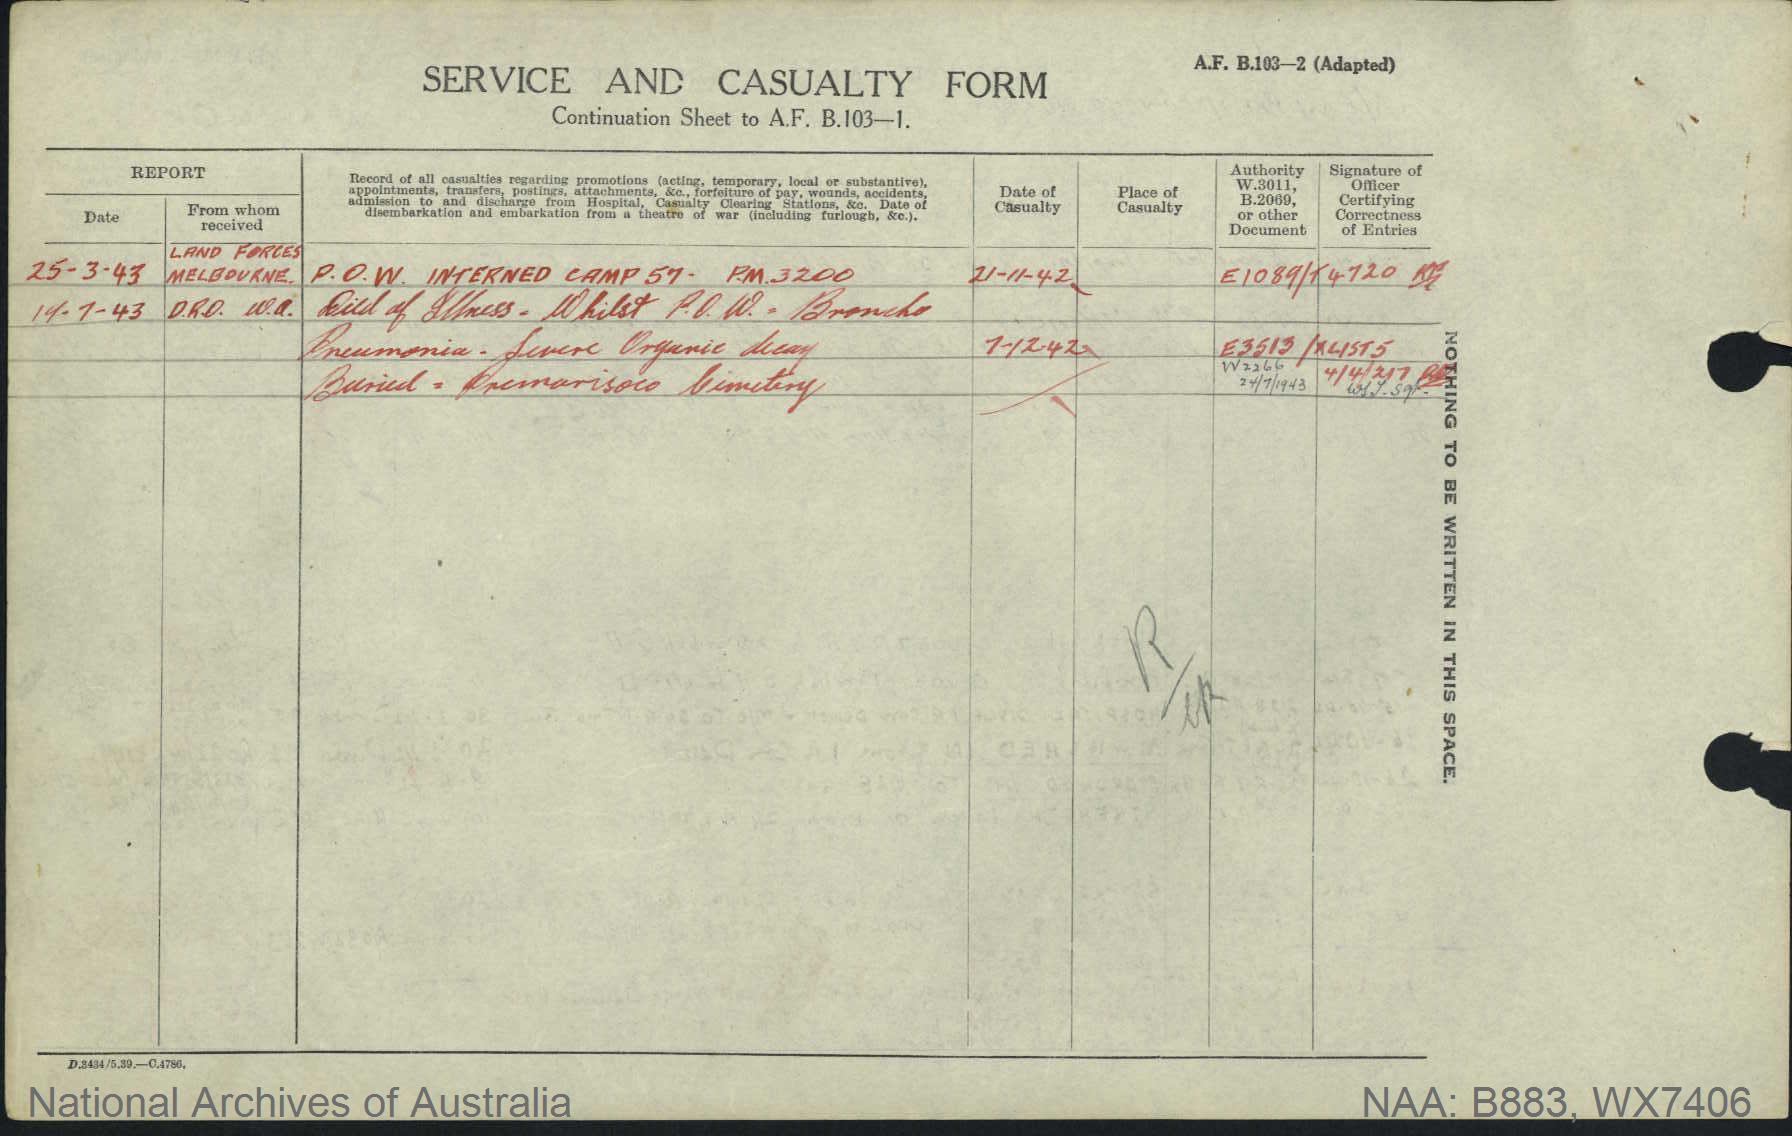 A.F. B.103—2 (Adapted)
SERVICE AND CASUALTY FORM
Continuation Sheet to A.F. B.103—1.
REPORT
Date
From whom
received
Record of all casualties regarding promotions (acting, temporary, local or substantive),
appointments, transfers, postings, attachments, &c., forfeiture of pay, wounds, accidents,
admission to and discharge from Hospital, Casualty Clearing Stations, &c. Date of
disembarkation and embarkation from a theatre of war (including furlough, &c.).
Date of
Casualty
Place of
Casualty
Authority
W.3011,
B.2069,
or other
Document
Signature of
Officer
Certifying
Correctness
of Entries
LAND FORCES
25-3-43 MELBOURNE. P.O.W. INTERNED CAMP 57- P.M. 3200 21-11-42 E1089/ 4720
19-7-43 D.R.O. W.A. Died of Illness - Whilst P.O.W. - Broncho
Pneumonia - Severe Organic decay 7-12-42 E3513/ LIST5
Buried - Premarisoco Cimetery W2266 4/4/217
24/7/1943 Sgt.
NOTHING TO BE WRITTEN IN THIS SPACE.
R
D.3434/5.39.—C.4786.
National Archives of Australia
NAA: B883, WX7406